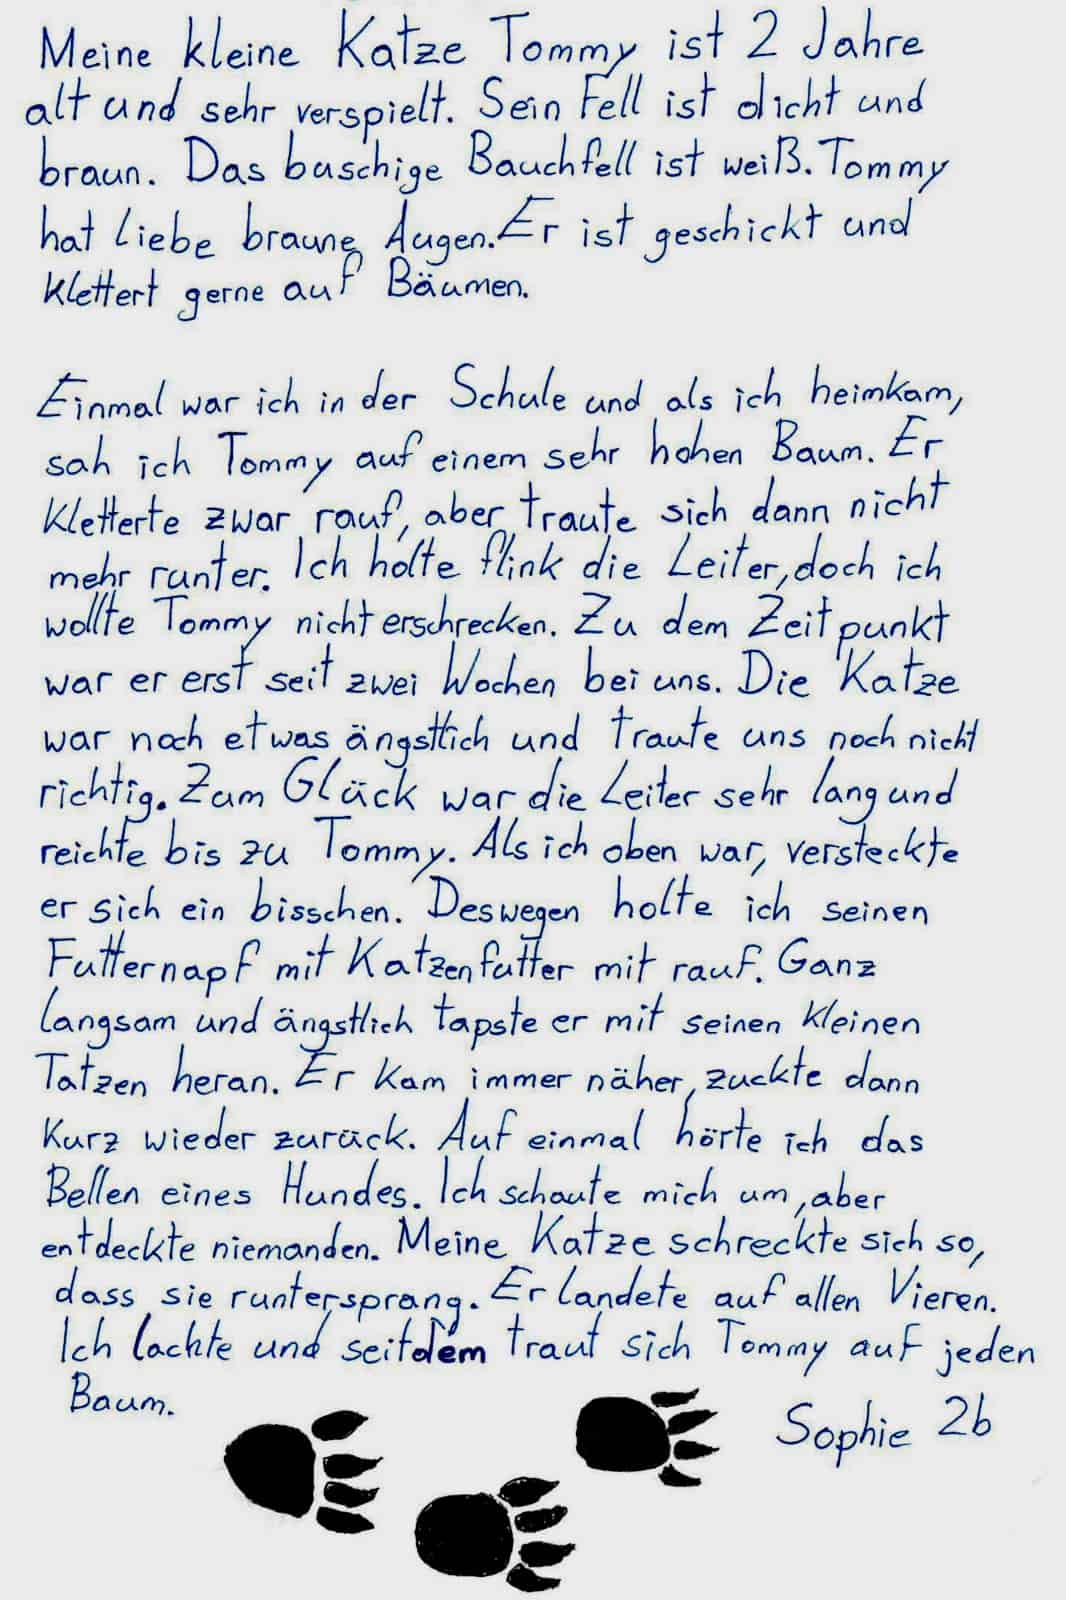 Meine kleine Katze Tommy ist 2 Jahre
alt und sehr verspielt. Sein Fell ist dicht und
braun. Das buschige Bauchfell ist weiß. Tommy
hat liebe braune Augen. Er ist geschickt und
klettert gerne auf Bäumen.
Einmal war ich in der Schule und als ich heimkam,
sah ich Tommy auf einem sehr hohen Baum. Er
kletterte zwar rauf, aber traute sich dann nicht
mehr runter. Ich holte flink die Leiter, doch ich
wollte Tommy nicht erschrecken. Zu dem Zeitpunkt
war er erst seit zwei Wochen bei uns. Die Katze
war noch etwas ängstlich und traute uns noch nicht
richtig. Zum Glück war die Leiter sehr lang und
reichte bis zu Tommy. Als ich oben war, versteckte
er sich ein bisschen. Deswegen holte ich seinen
Futternapf mit Katzenfutter mit rauf. Ganz
langsam und ängstlich tapste er mit seinen kleinen
Tatzen heran. Er kam immer näher, zuckte dann
kurz wieder zurück. Auf einmal hörte ich das
Bellen eines Hundes. Ich schaute mich um, aber
entdeckte niemanden. Meine Katze schreckte sich so,
dass sie runtersprang. Er landete auf allen Vieren.
Ich lachte und seitdem traut sich Tommy auf jeden
Baum.
Sophie 2b